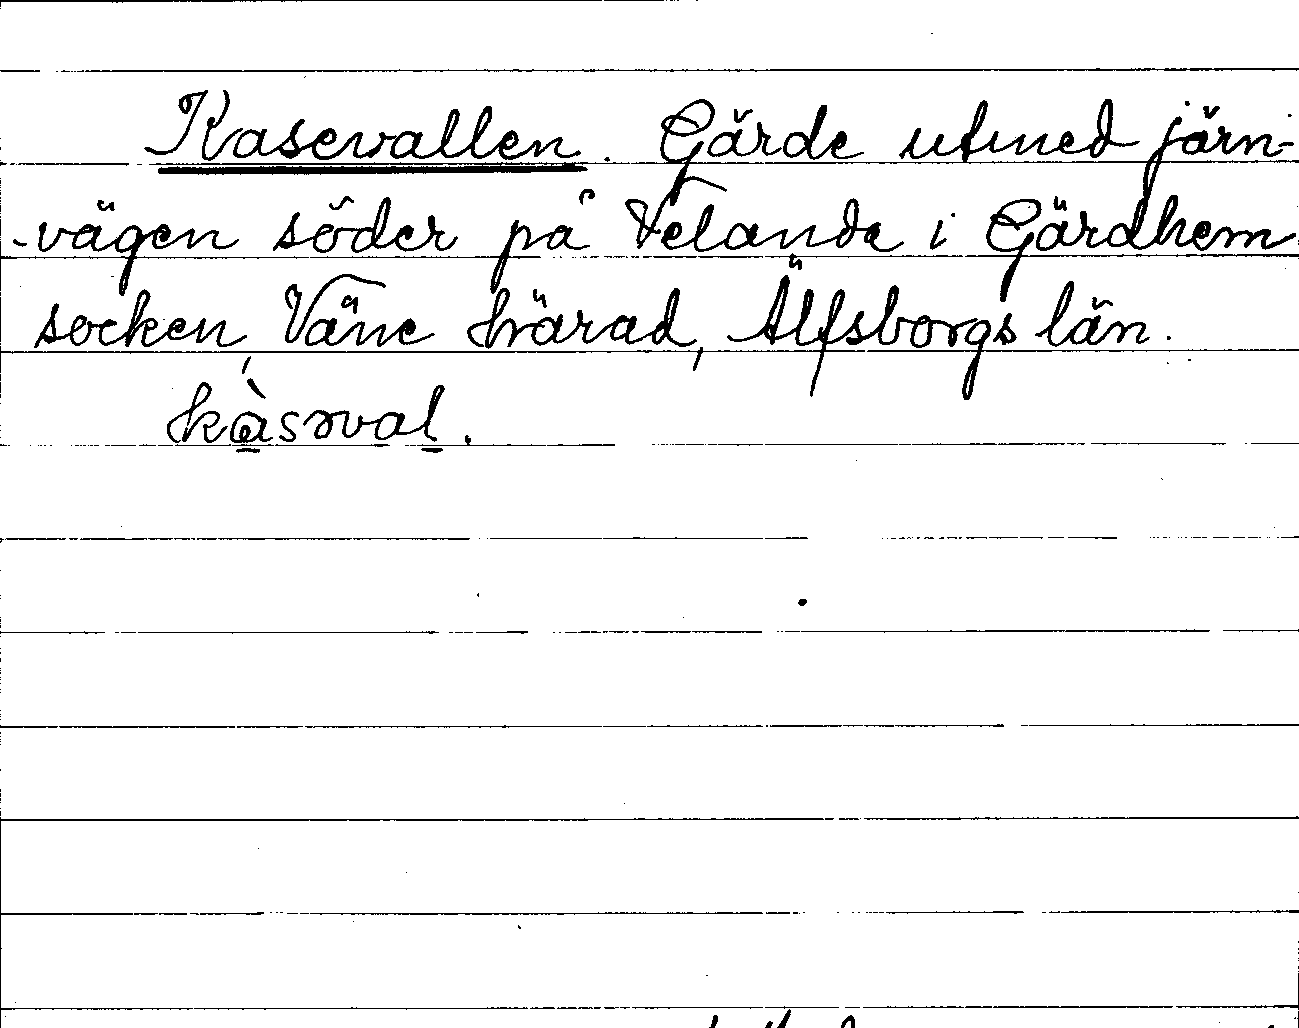 Kasevallen. Gärde utmed järn-
-vägen söder på Velanda i Gärdhem
socken, Väne härad, Älfsborgs län.
kàsrval.